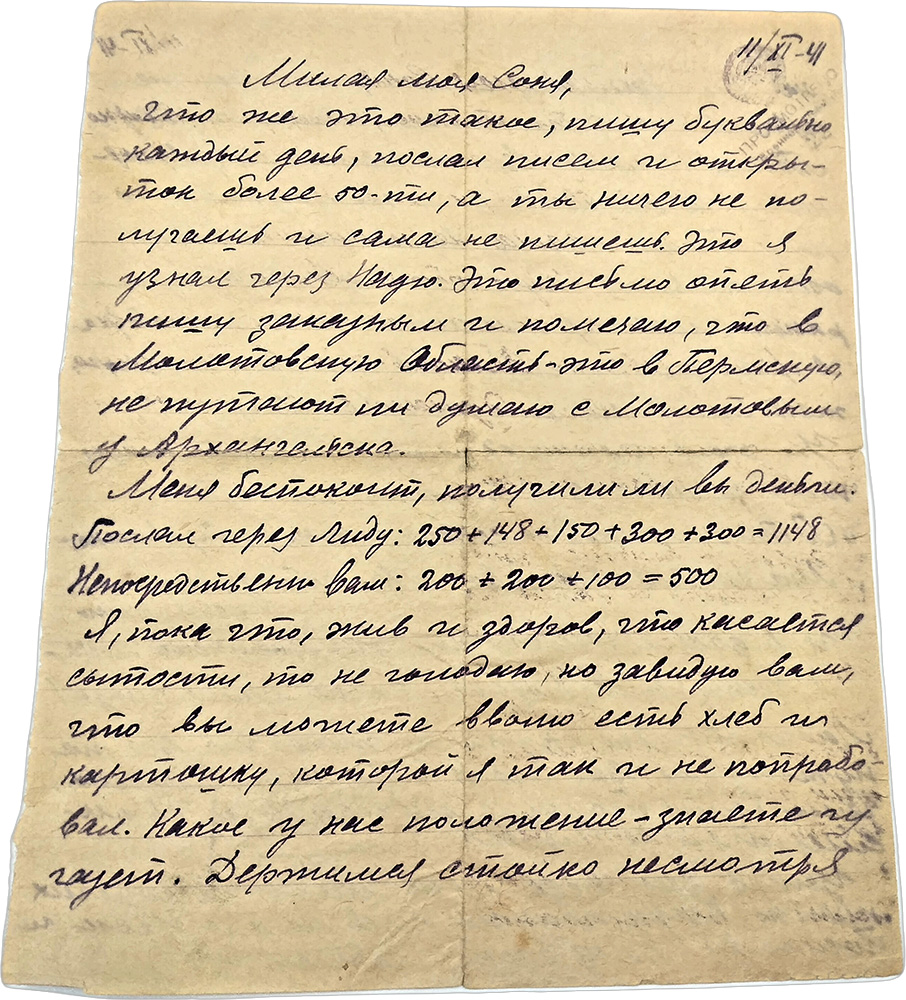 11/XI-41
Милая моя Соня,
Что же это такое, пишу буквально
каждый день, послал писем и откры-
ток более 50-ти, а ты ничего не по-
лучаешь и сама не пишешь. Это я
узнал через Надю. Это письмо опять
пишу заказным и помечаю, что в
Молотовскую Область-это в Пермскую,
не путают ли думаю с Молотовым
у Архангельска.
Меня беспокоит, получили ли вы деньги.
Послал через Лиду: 250+148+150+300+300=1148
Непосредственно вам: 200+200+100=500
Я, пока что, жив и здоров, что касается
сытости, то не голодаю, но завидую вам,
что вы можете вволю есть хлеб и
картошку, которой я так и не попробо-
вал. Какое у нас положение-знаете из
газет. Держимся стойко несмотря